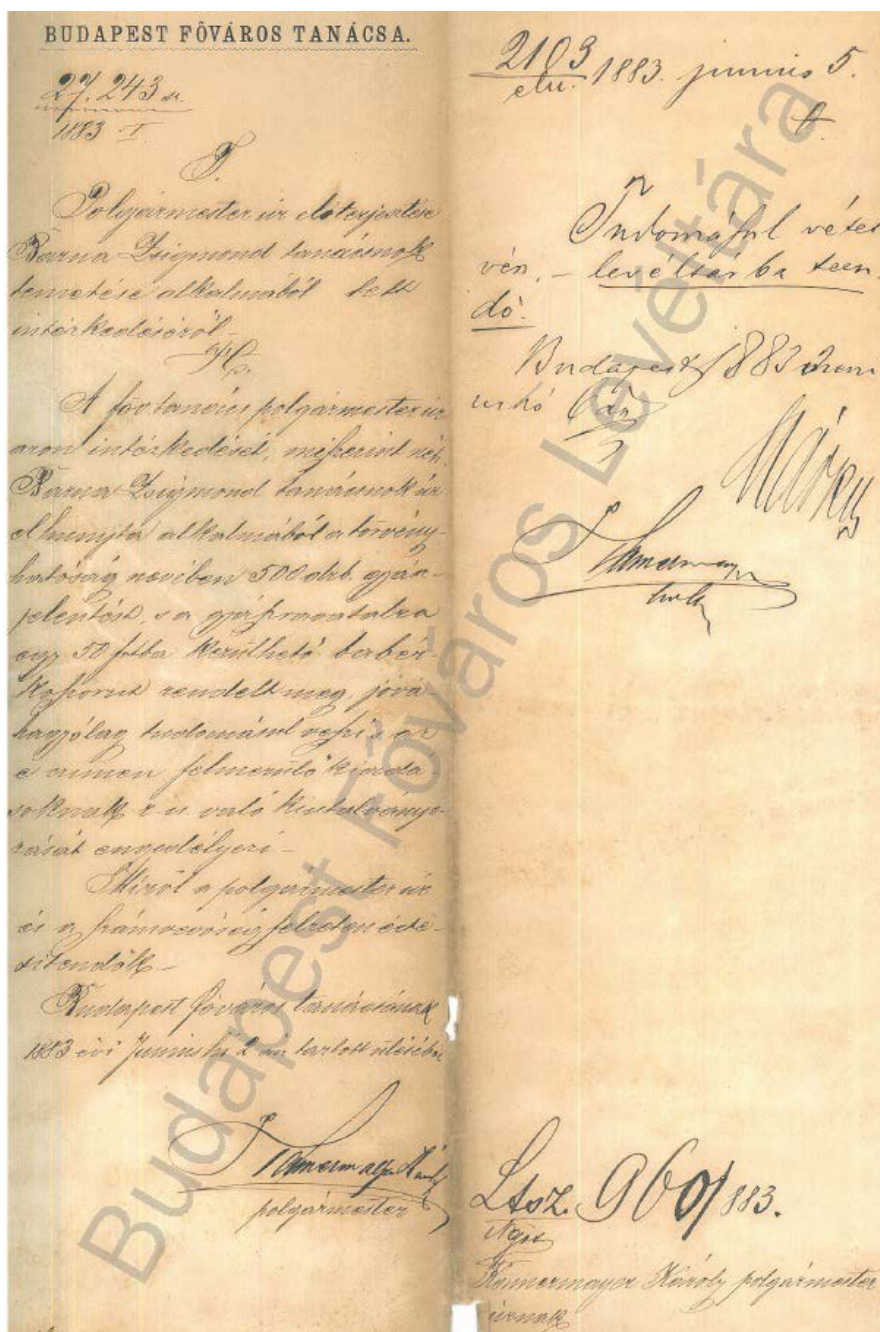 BUDAPEST FŐVÁROS TANÁCSA.
27.243 sz.
1883 I
T.
Polgármester úr előterjesztése
Barna Zsigmond tanácsnok
temetése alkalmából tett
intézkedéséről.
A főv. tanács polgármester úr
azon intézkedését, miszerint néh.
Barna Zsigmond tanácsnok úr
elhunyta alkalmából a törvény-
hatóság nevében 500 drb. gyász-
jelentést, s a gyászravatalra
egy 50 frtba kerülhető babér-
koszorut rendelt meg, jóvá-
hagyólag tudomásul veszi s az
e címen felmerülő kiadá-
soknak r. u. való kiutalványo-
zását engedélyezi -
Miről a polgármester úr
és a számvevőség felzeten érte-
sitendők -
Budapest főváros tanácsának
1883 évi Junius hó 2-án tartott üléséből
Kamermayer Károly
polgármester
2103
eln. 1883. junius 5.
Tudomásul vétet
vén, - levéltárba teen
dő.
Budapest 1883 Juni
us hó
Kamermayer
Ltsz. 960/883.
Ngos
Kamermayer Károly polgármester
úrnak
Budapest Főváros Levéltára